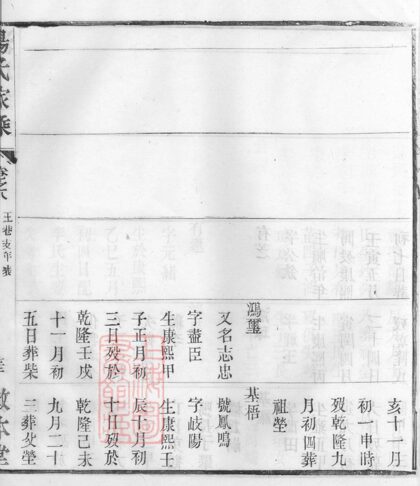 鴻璽
又名志忠
字藎臣
生康熙甲
子正月初
三日歿於
乾隆壬戌
十一月初
五日葬柴
亥十一月
初一申時
歿乾隆九
月初四葬
祖塋
基梧
號鳳鳴
字岐陽
生康熙壬
辰十月初
十日歿於
乾隆己未
九月二十
三葬父塋
楊氏家乘
卷六
王巷支年表
敦本堂